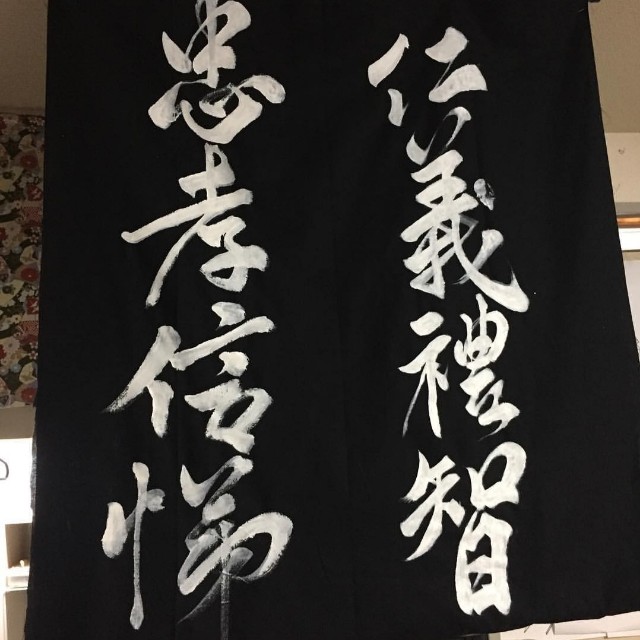 仁義禮智
忠孝信悌